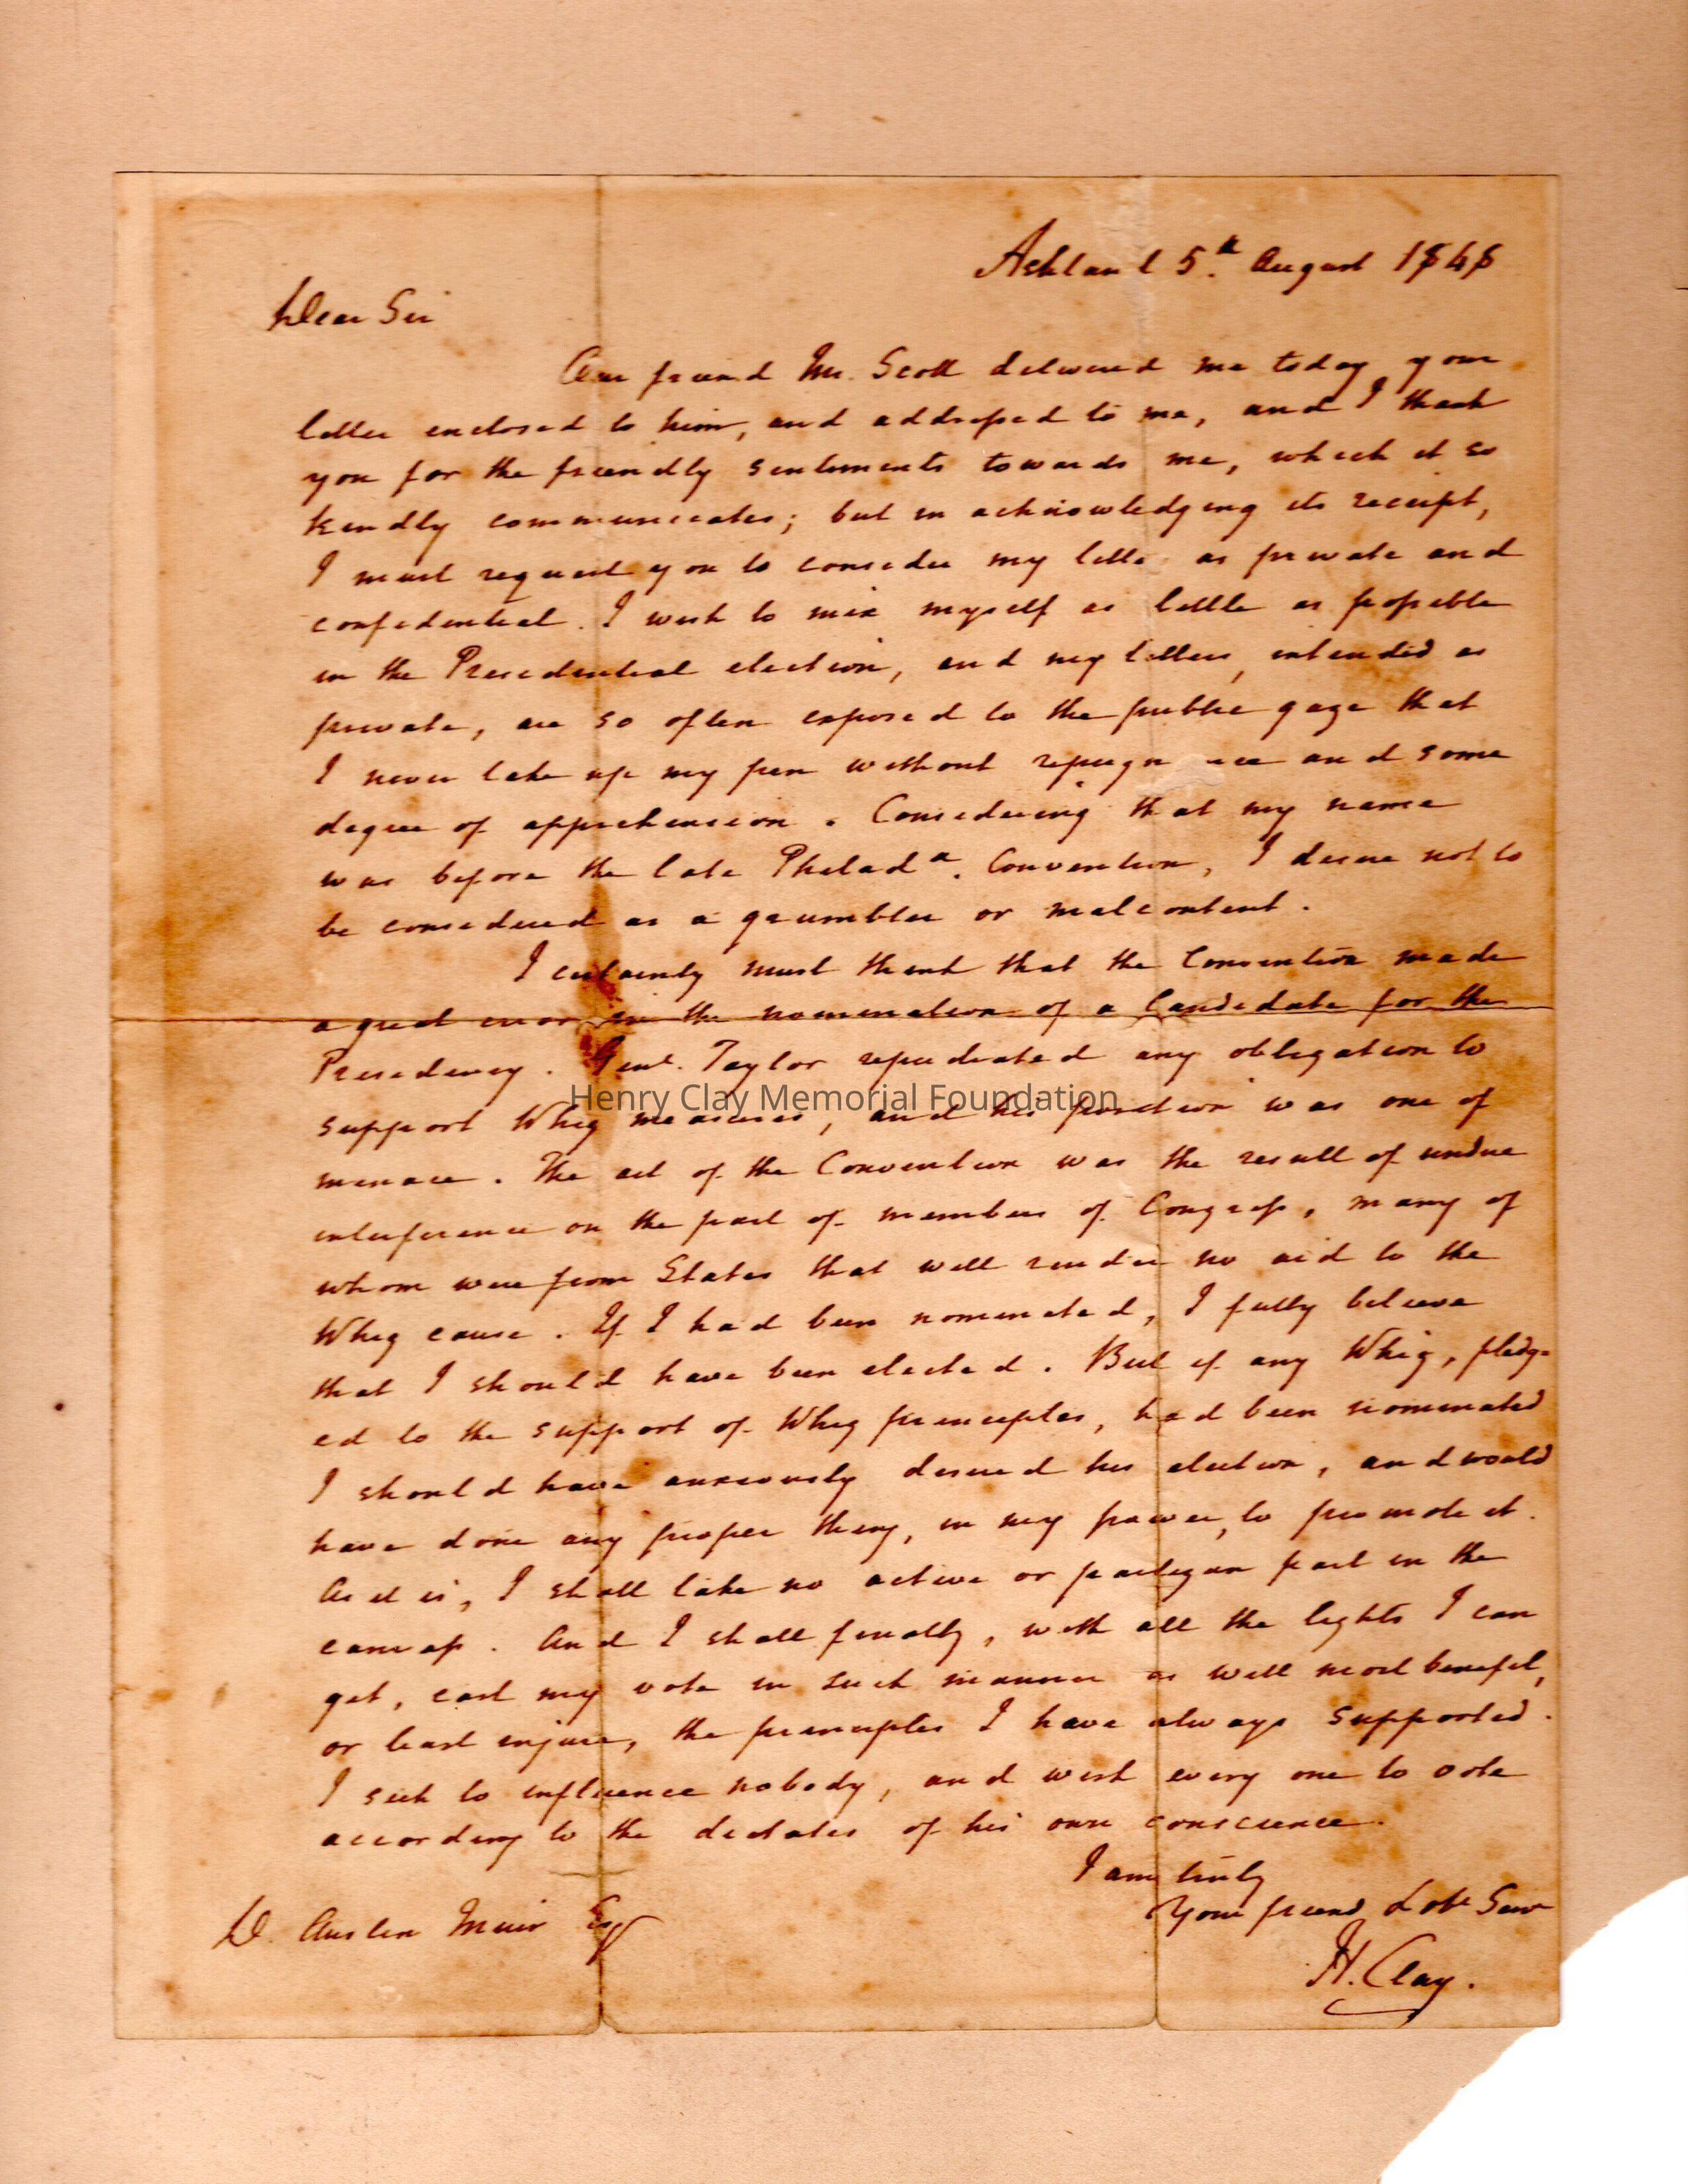 Ashland 5.th August 1848
Dear Sir
Our friend Mr. Scott delivered me today your
letter enclosed to him, and addressed to me, and I thank
you for the friendly sentiments towards me, which it so
kindly communicates; but in acknowledging its receipt,
I must request you to consider my letter as private and
confidential. I wish to mix myself as little as possible
in the Presidential election, and my letters, intended as
private, are so often exposed to the public gaze that
I never take up my pen without repugnance and some
degree of apprehension. Considering that my name
was before the late Philada. Convention, I desire not to
be considered as a grumbler or malcontent.
I certainly must think that the Convention made
a great error in the nomination of a Candidate for the
Presidency. Genl. Taylor repudiated any obligation to
Henry Clay Memorial Foundation
support Whig measures, and his position was one of
menace. The act of the Convention was the result of undue
interference on the part of members of Congress, many of
whom were from States that will render no aid to the
Whig cause. If I had been nominated, I fully believe
that I should have been elected. But if any Whig, pledg-
ed to the support of Whig principles, had been nominated
I should have anxiously desired his election, and would
have done any proper thing, in my power, to promote it.
As it is, I shall take no active or partizan part in the
canvass. And I shall finally, with all the lights I can
get, cast my vote in such manner as will most benefit,
or least injure, the principles I have always supported.
I seek to influence nobody, and wish every one to vote
according to the dictates of his own conscience.
I am truly
Your friend & obt Serv
D. Austin Muir Esq
H. Clay.